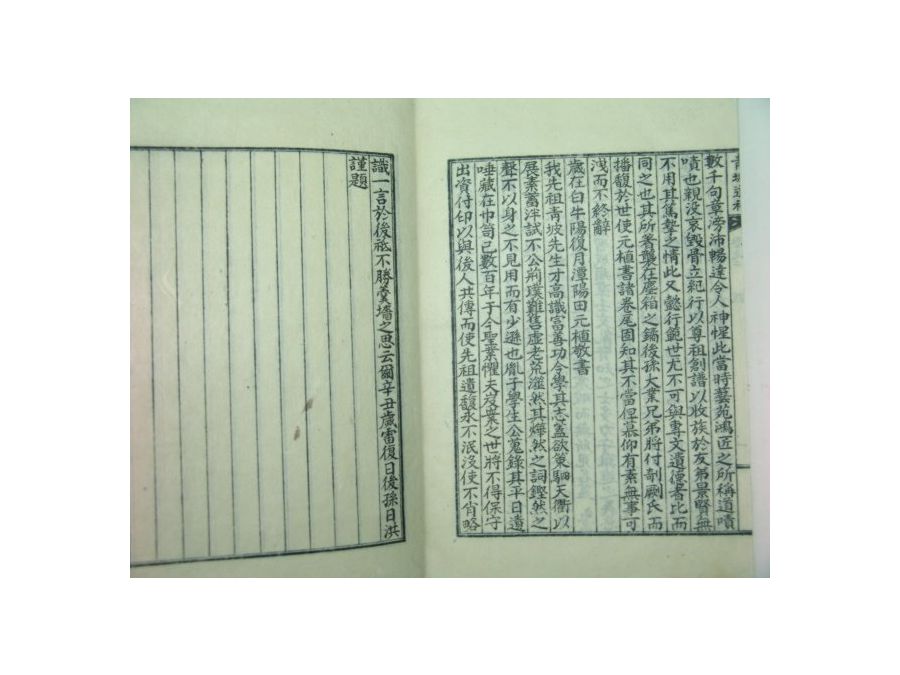 青坡遺稿
數千句章滂沛暢達令人神惺此當時藝苑鴻匠之所稱道嘖
嘖也親没哀毁骨立紀行以尊祖創譜以收族於友弟景賢無
不用其篤摯之情此又懿行範世尤不可與專文遺德者比而
同之也其所著襲在塵箱之鐍後孫大業兄弟將付剞劂氏而
播馥於世使元植書諸卷尾固知其不當但慕仰有素無事可
洩而不終辭
歲在白牛陽復月潭陽田元植敬書
我先祖青坡先生才高識富善功令學其志盖欲策駟天衢以
展素蓄泮試不公荊璞難售虛老荒滋然其燁然之詞鏗然之
聲不以身之不見用而有少遜也胤子學生公蒐錄其平日遺
唾藏在巾笥已數百年于今聖業懼夫岌業之世將不得保守
出資付印以與後人共傳而使先祖遺馥永不泯沒使不肖略
識一言於後祗不勝羹墻之思云爾辛丑歲雷復日後孫日洪
謹題